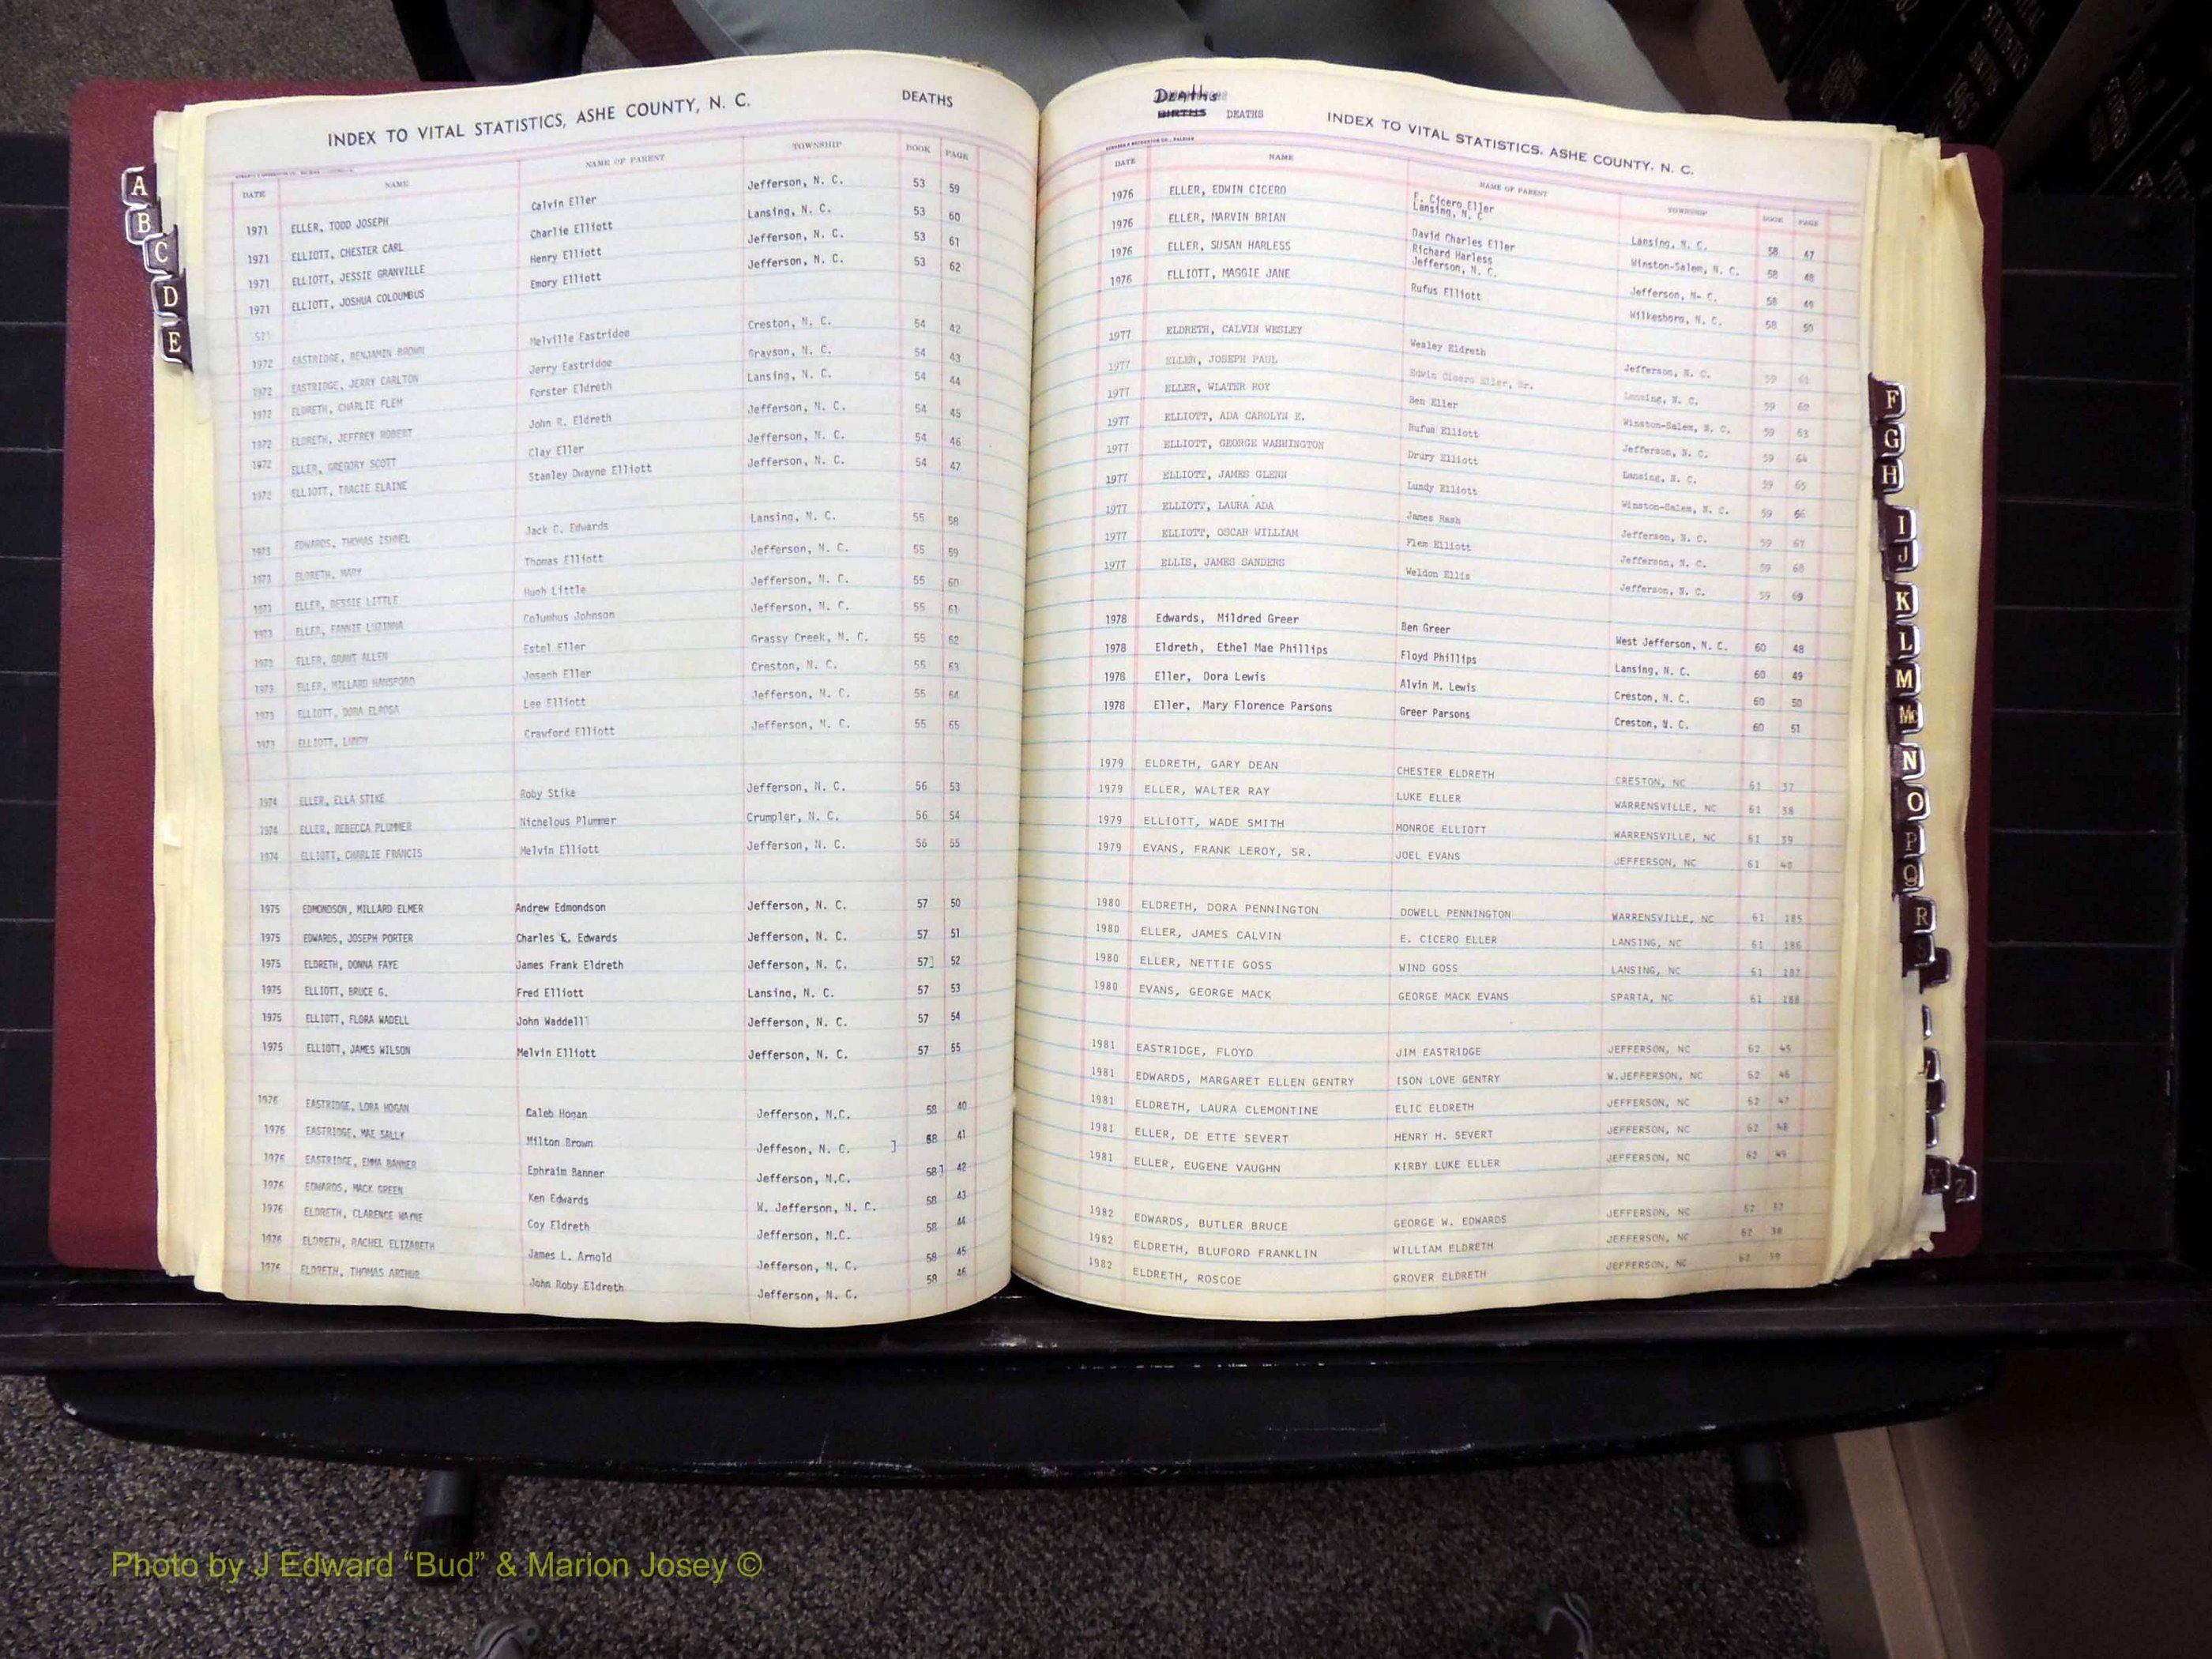 INDEX TO VITAL STATISTICS, ASHE COUNTY, N. C. DEATHS
DATE NAME NAME OF PARENT TOWNSHIP BOOK PAGE
1971 ELLER, TODD JOSEPH Calvin Eller Jefferson, N. C. 53 59
1971 ELLIOTT, CHESTER CARL Charlie Elliott Lansing, N. C. 53 60
1971 ELLIOTT, JESSIE GRANVILLE Henry Elliott Jefferson, N. C. 53 61
1971 ELLIOTT, JOSHUA COLOUMBUS Emory Elliott Jefferson, N. C. 53 62
1972 EASTRIDGE, BENJAMIN BROWN Melville Eastridge Creston, N. C. 54 42
1972 EASTRIDGE, JERRY CARLTON Jerry Eastridge Grayson, N. C. 54 43
1972 ELDRETH, CHARLIE FLEM Forster Eldreth Lansing, N. C. 54 44
1972 ELDRETH, JEFFREY ROBERT John R. Eldreth Jefferson, N. C. 54 45
1972 ELLER, GREGORY SCOTT Clay Eller Jefferson, N. C. 54 46
1972 ELLIOTT, TRACIE ELAINE Stanley Dwayne Elliott Jefferson, N. C. 54 47
1973 EDWARDS, THOMAS ISHMEL Jack C. Edwards Lansing, N. C. 55 58
1973 ELDRETH, MARY Thomas Elliott Jefferson, N. C. 55 59
1973 ELLER, BESSIE LITTLE Hugh Little Jefferson, N. C. 55 60
1973 ELLER, FANNIE LUZINNA Columhus Johnson Jefferson, N. C. 55 61
1973 ELLER, GRANT ALLEN Estel Eller Grassy Creek, N. C. 55 62
1973 ELLER, MILLARD HANSFORD Joseph Eller Creston, N. C. 55 63
1973 ELLIOTT, DORA ELROSA Lee Elliott Jefferson, N. C. 55 64
1973 ELLIOTT, LUNDY Crawford Elliott Jefferson, N. C. 55 65
1974 ELLER, ELLA STIKE Roby Stike Jefferson, N. C. 56 53
1974 ELLER, REBECCA PLUMMER Nichelous Plummer Crumpler, N. C. 56 54
1974 ELLIOTT, CHARLIE FRANCIS Melvin Elliott Jefferson, N. C. 56 55
1975 EDMONDSON, MILLARD ELMER Andrew Edmondson Jefferson, N. C. 57 50
1975 EDWARDS, JOSEPH PORTER Charles E. Edwards Jefferson, N. C. 57 51
1975 ELDRETH, DONNA FAYE James Frank Eldreth Jefferson, N. C. 57] 52
1975 ELLIOTT, BRUCE G. Fred Elliott Lansing, N. C. 57 53
1975 ELLIOTT, FLORA WADELL John Waddell Jefferson, N. C. 57 54
1975 ELLIOTT, JAMES WILSON Melvin Elliott Jefferson, N. C. 57 55
1976 EASTRIDGE, LORA HOGAN Caleb Hogan Jefferson, N.C. 58 40
1976 EASTRIDGE, MAE SALLY Milton Brown Jeffeson, N. C. ] 58 41
1976 EASTRIDGE, EMMA BANNER Ephraim Banner Jefferson, N.C. 58] 42
1976 EDWARDS, MACK GREEN Ken Edwards W. Jefferson, N. C. 58 43
1976 ELDRETH, CLARENCE WAYNE Coy Eldreth Jefferson, N.C. 58 44
1976 ELDRETH, RACHEL ELIZABETH James L. Arnold Jefferson, N. C. 58 45
1976 ELDRETH, THOMAS ARTHUR John Roby Eldreth Jefferson, N. C. 58 46
Deaths
BIRTHS DEATHS INDEX TO VITAL STATISTICS, ASHE COUNTY, N. C.
DATE NAME NAME OF PARENT TOWNSHIP BOOK PAGE
1976 ELLER, EDWIN CICERO E. Cicero Eller Lansing, N. C. 58 47
Lansing, N. C
1976 ELLER, MARVIN BRIAN David Charles Eller Winston-Salem, N. C. 58 48
1976 ELLER, SUSAN HARLESS Richard Harless Jefferson, N. C. 58 49
Jefferson, N. C.
1976 ELLIOTT, MAGGIE JANE Rufus Elliott Wilkesboro, N. C. 58 50
1977 ELDRETH, CALVIN WESLEY Wesley Eldreth Jefferson, N. C. 59 61
1977 ELLER, JOSEPH PAUL Edwin Cicero Eller, Sr. Lansing, N. C. 59 62
1977 ELLER, WLATER ROY Ben Eller Winston-Salem, N. C. 59 63
1977 ELLIOTT, ADA CAROLYN E. Rufus Elliott Jefferson, N. C. 59 64
1977 ELLIOTT, GEORGE WASHINGTON Drury Elliott Lansing, N. C. 59 65
1977 ELLIOTT, JAMES GLENN Lundy Elliott Winston-Salem, N. C. 59 66
1977 ELLIOTT, LAURA ADA James Rash Jefferson, N. C. 59 67
1977 ELLIOTT, OSCAR WILLIAM Flem Elliott Jefferson, N. C. 59 68
1977 ELLIS, JAMES SANDERS Weldon Ellis Jefferson, N. C. 59 69
1978 Edwards, Mildred Greer Ben Greer West Jefferson, N. C. 60 48
1978 Eldreth, Ethel Mae Phillips Floyd Phillips Lansing, N. C. 60 49
1978 Eller, Dora Lewis Alvin M. Lewis Creston, N. C. 60 50
1978 Eller, Mary Florence Parsons Greer Parsons Creston, N. C. 60 51
1979 ELDRETH, GARY DEAN CHESTER ELDRETH CRESTON, NC 61 37
1979 ELLER, WALTER RAY LUKE ELLER WARRENSVILLE, NC 61 38
1979 ELLIOTT, WADE SMITH MONROE ELLIOTT WARRENSVILLE, NC 61 39
1979 EVANS, FRANK LEROY, SR. JOEL EVANS JEFFERSON, NC 61 40
1980 ELDRETH, DORA PENNINGTON DOWELL PENNINGTON WARRENSVILLE, NC 61 185
1980 ELLER, JAMES CALVIN E. CICERO ELLER LANSING, NC 61 186
1980 ELLER, NETTIE GOSS WIND GOSS LANSING, NC 61 187
1980 EVANS, GEORGE MACK GEORGE MACK EVANS SPARTA, NC 61 188
1981 EASTRIDGE, FLOYD JIM EASTRIDGE JEFFERSON, NC 62 45
1981 EDWARDS, MARGARET ELLEN GENTRY ISON LOVE GENTRY W.JEFFERSON, NC 62 46
1981 ELDRETH, LAURA CLEMONTINE ELIC ELDRETH JEFFERSON, NC 62 47
1981 ELLER, DE ETTE SEVERT HENRY H. SEVERT JEFFERSON, NC 62 48
1981 ELLER, EUGENE VAUGHN KIRBY LUKE ELLER JEFFERSON, NC 62 49
1982 EDWARDS, BUTLER BRUCE GEORGE W. EDWARDS JEFFERSON, NC 62
1982 ELDRETH, BLUFORD FRANKLIN WILLIAM ELDRETH JEFFERSON, NC 62
1982 ELDRETH, ROSCOE GROVER ELDRETH JEFFERSON, NC 62
A
B
C
D
E
F
G
H
I
J
K
L
M
Mc
N
O
P
Q
R
Y Z
Photo by J Edward “Bud” & Marion Josey ©